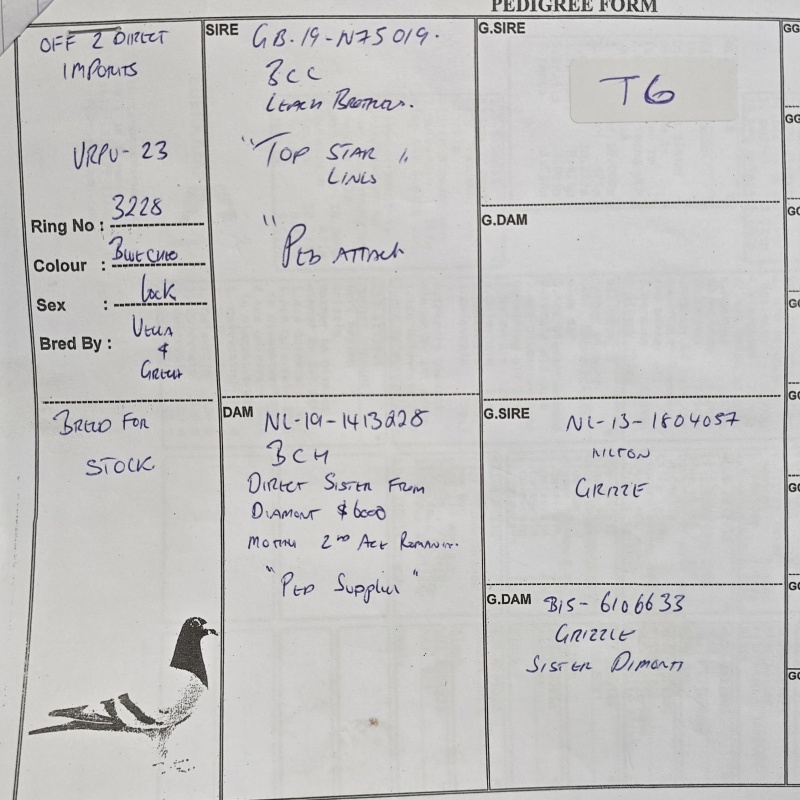 PEDIGREE FORM
OFF 2 DIRECT
IMPORTS
VRPU- 23
Ring No : 3228
Colour : BLUE CHEQ
Sex : COCK
Bred By : VELLA
&
GRECH
BRED FOR
STOCK
SIRE GB-19-N75019.
BCC
LEACH BROTHERS.
"TOP STAR "
LINES
"PED ATTACH
DAM NL-19-1413228
BCH
DIRECT SISTER FROM
DIAMONT $6000
MOTHER 2ND ACE
"PED Supplied"
G.SIRE
T6
G.DAM
G.SIRE NL-13-1804057
MILTON
GRIZZE
G.DAM B15-6106633
GRIZZLE
SISTER DIMONT